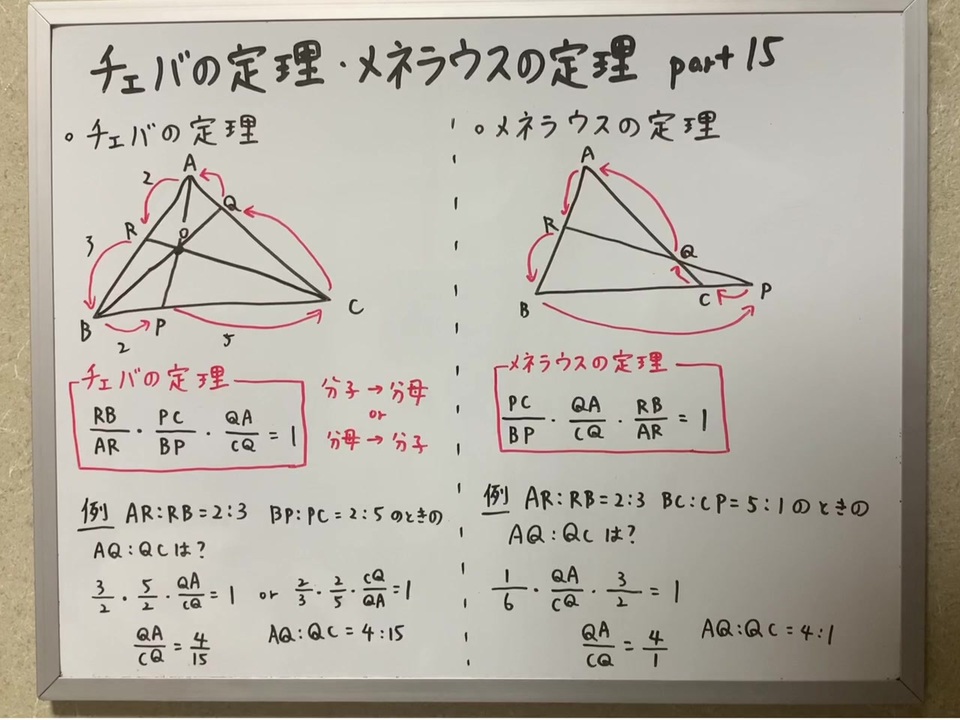 チェバの定理・メネラウスの定理 part 15
○ チェバの定理
A
2
Q
R
O
3
B
P
C
2
5
チェバの定理
RB/AR · PC/BP · QA/CQ = 1
分子→分母
or
分母→分子
例 AR:RB=2:3 BP:PC=2:5のときの
AQ:QCは?
3/2 · 5/2 · QA/CQ = 1 or 2/3 · 2/5 · CQ/QA = 1
QA/CQ = 4/15 AQ:QC=4:15
○ メネラウスの定理
A
R
Q
B
C
P
メネラウスの定理
PC/BP · QA/CQ · RB/AR = 1
例 AR:RB=2:3 BC:CP=5:1のときの
AQ:QCは?
1/6 · QA/CQ · 3/2 = 1
QA/CQ = 4/1 AQ:QC=4:1